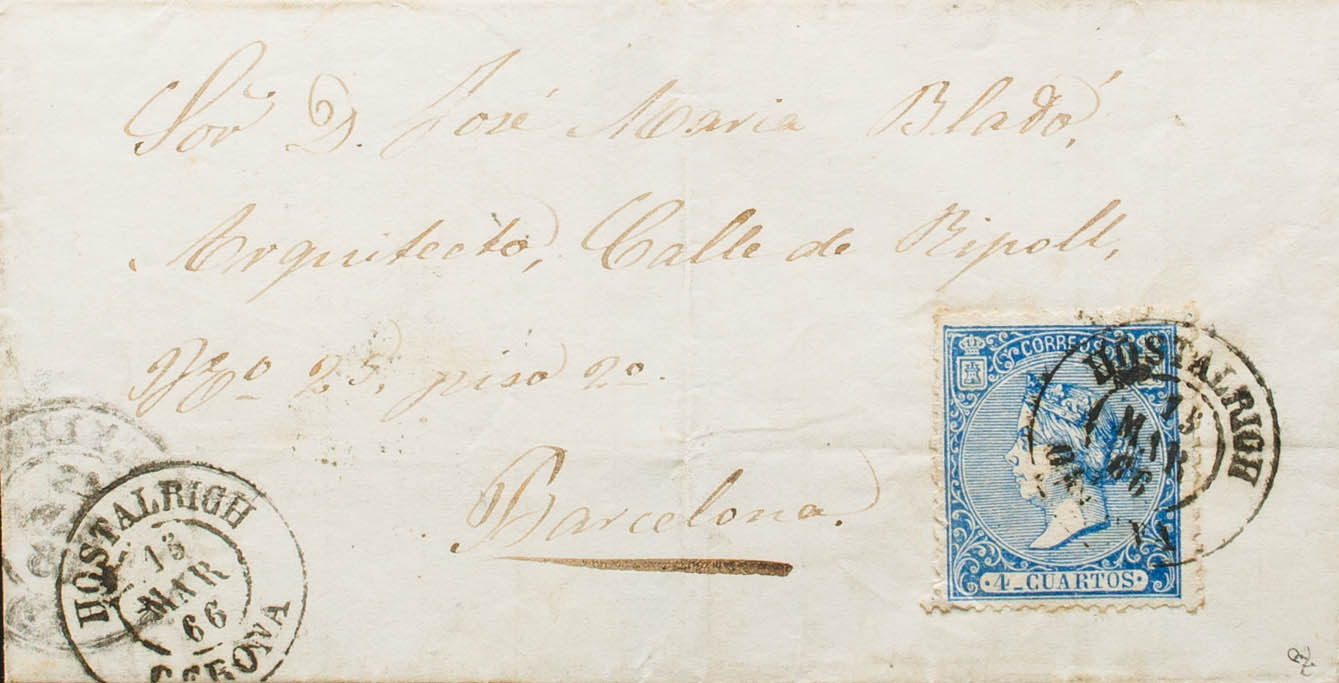 Sor D. José Maria Bladó,
Arquitecto, Calle de Ripoll,
Nº 25, piso 2º
Barcelona.
CORREOS
4 CUARTOS
HOSTALRICH
13
MAR
66
HOSTALRIGH
13
MAR
66
GERONA